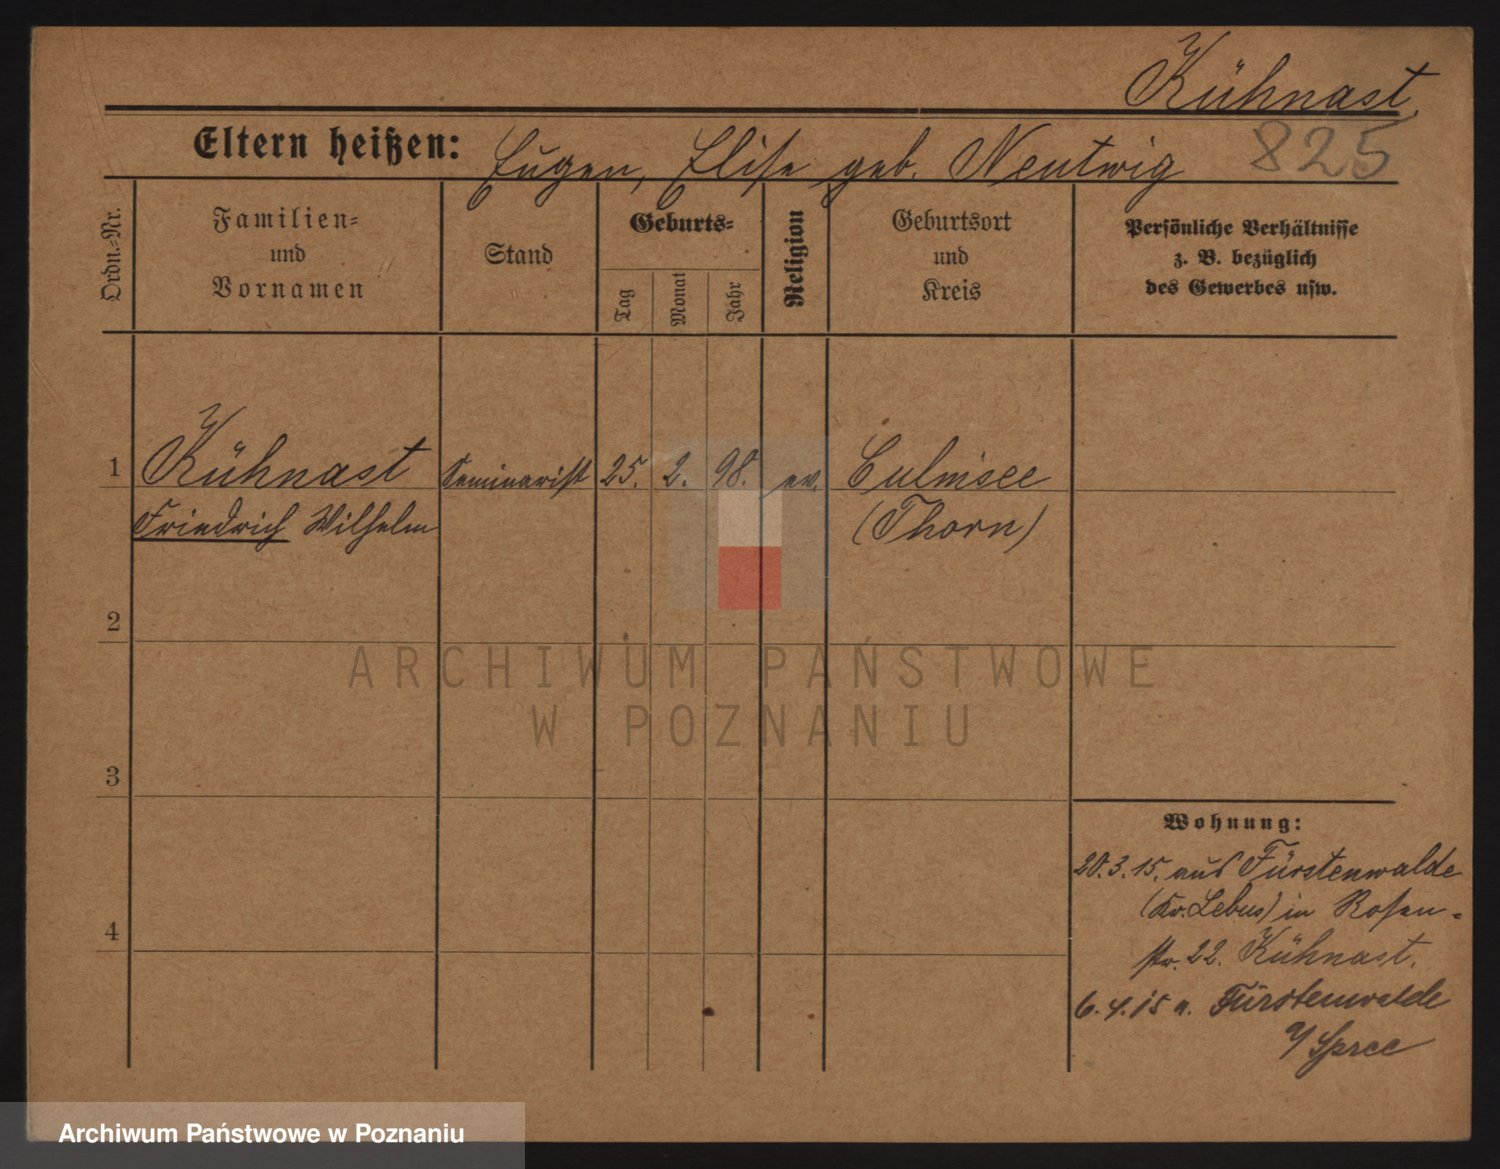 Kühnast
Eltern heißen: Eugen, Elise geb. Neutwig
825
Ordn.-Nr.
Familien-
und
Vornamen
Stand
Geburts-
Tag
Monat
Jahr
Religion
Geburtsort
und
Kreis
Persönliche Verhältnisse
z. B. bezüglich
des Gewerbes usw.
1 Kühnast Seminarist 25. 2. 98. ev. Culmsee
Friedrich Wilhelm (Thorn)
2
3
4
Wohnung:
20.3.15. aus Fürstenwalde
(Kr. Lebus) in Rosen-
str. 22. Kühnast.
6.4.15 n. Fürstenwalde
a/Spree
ARCHIWUM PAŃSTWOWE
W POZNANIU
Archiwum Państwowe w Poznaniu